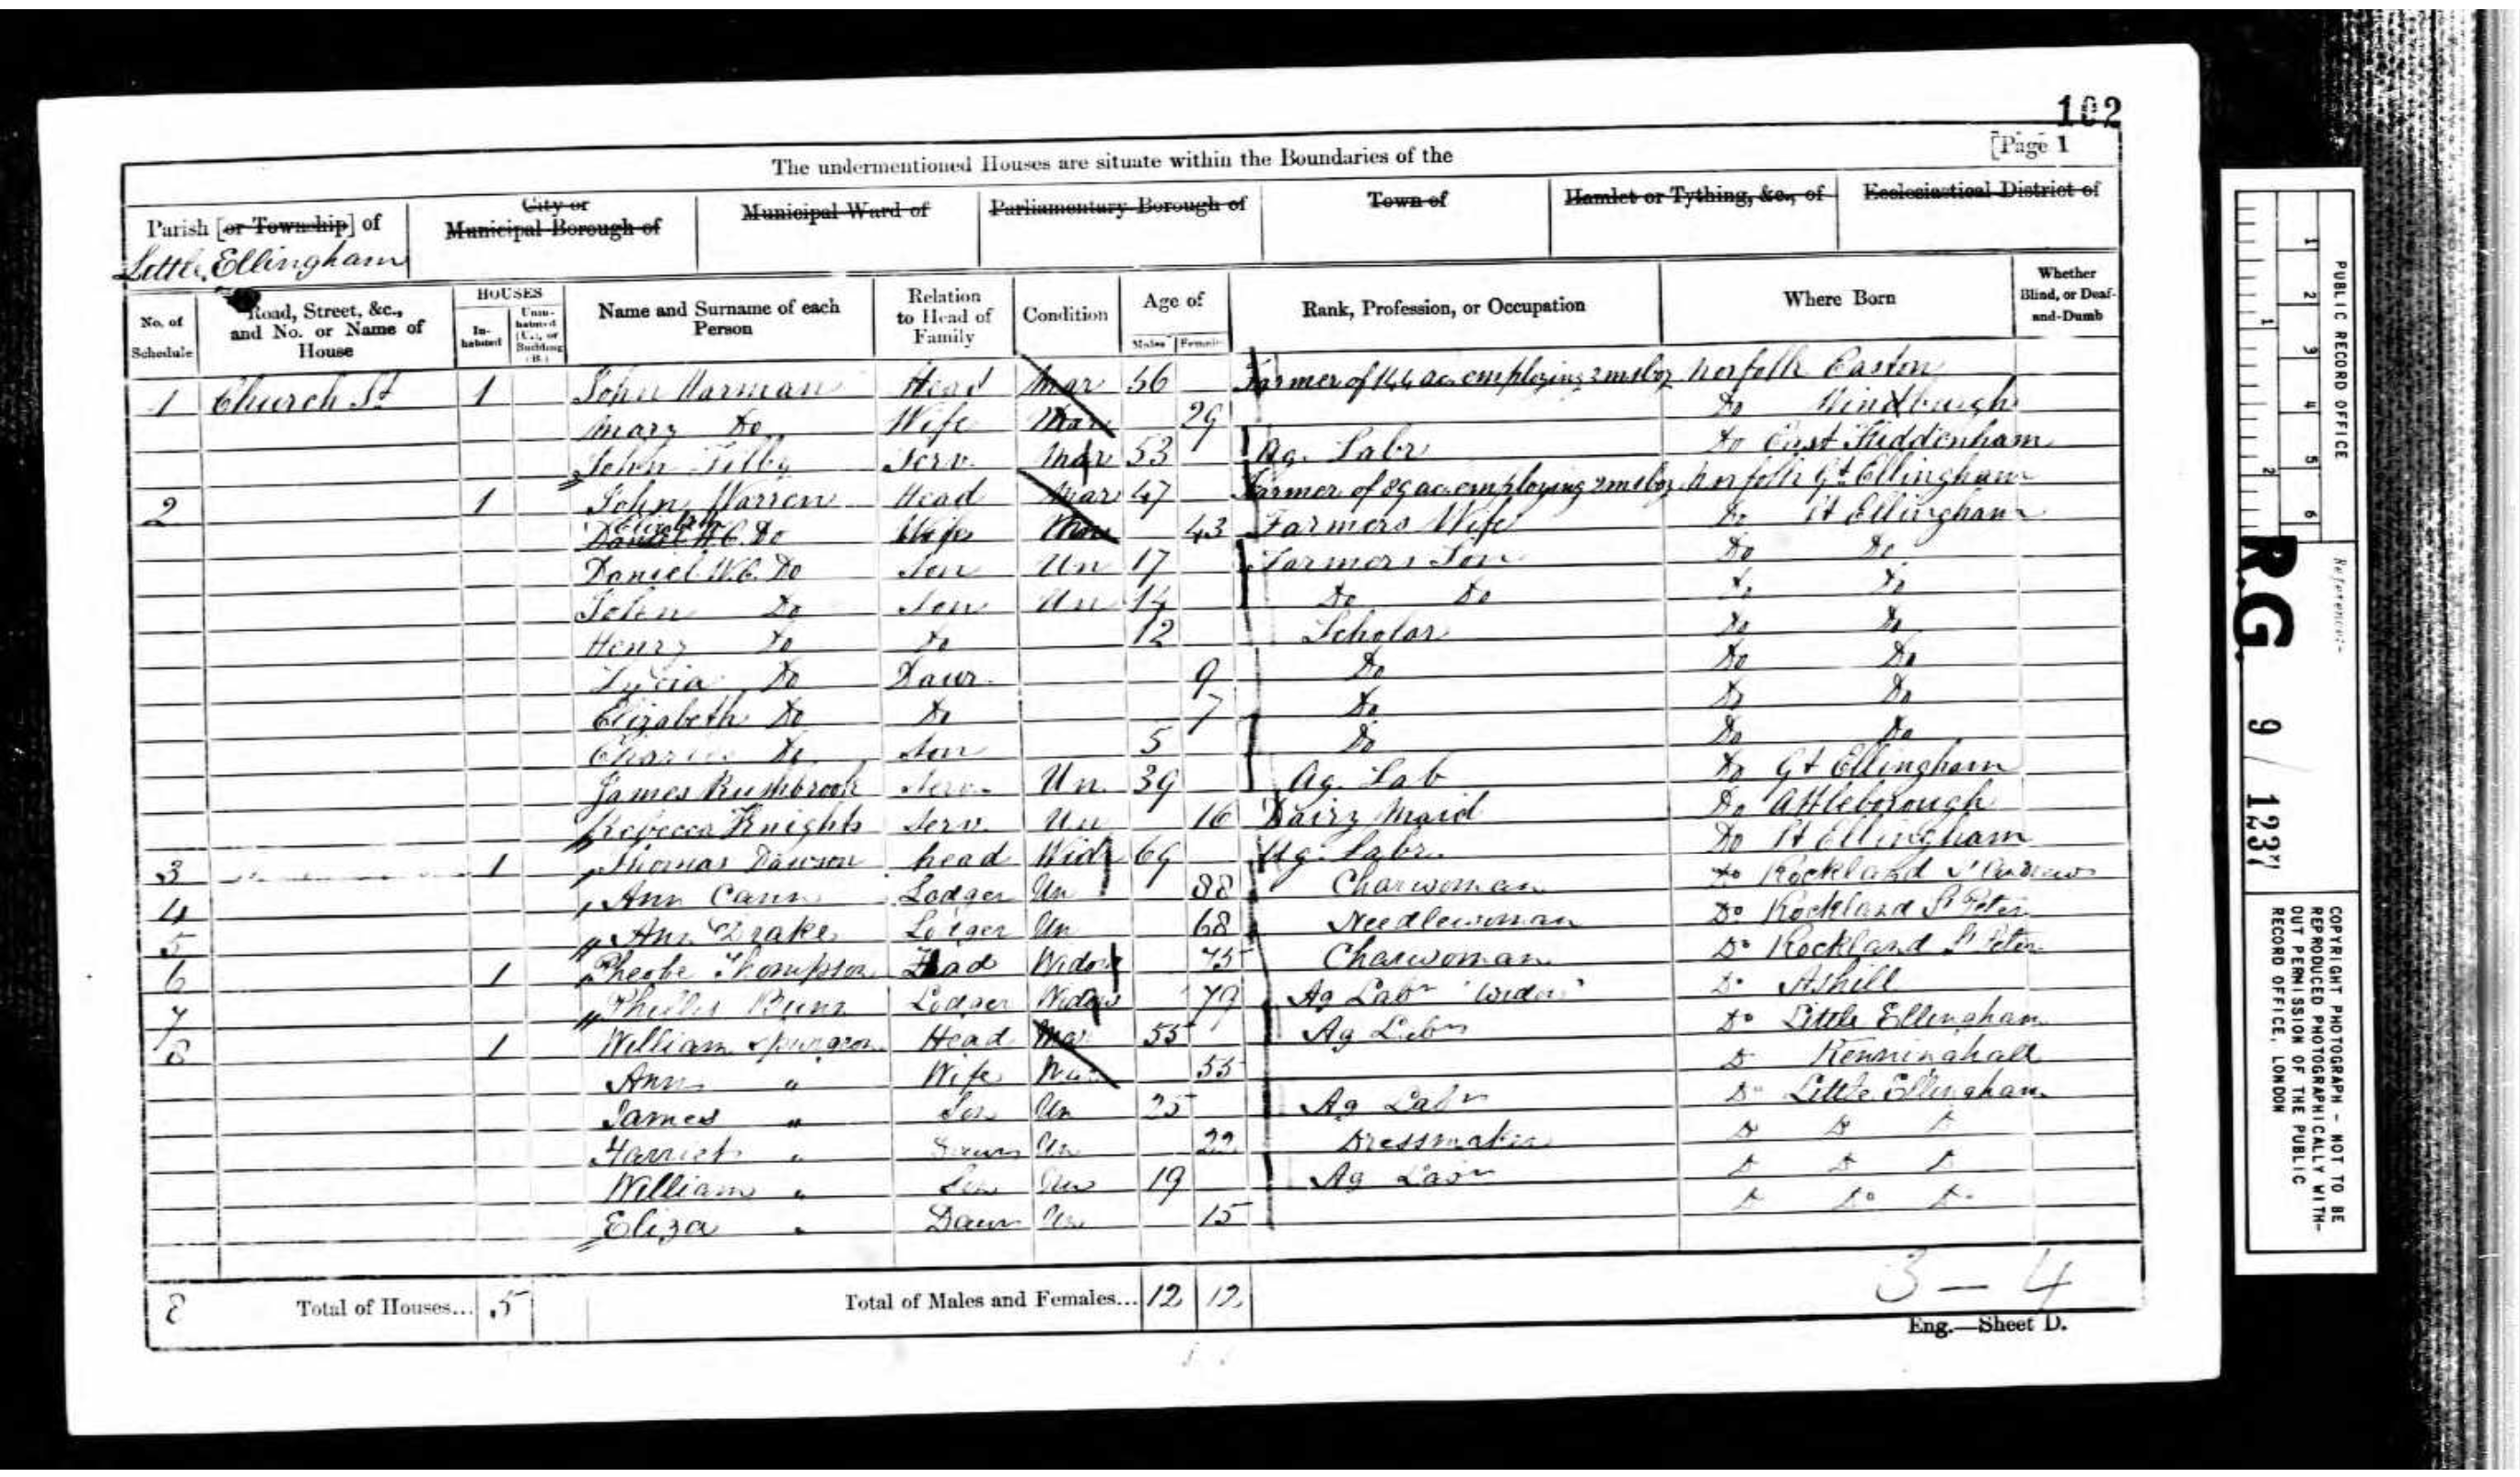 102
[Page 1
The undermentioned Houses are situate within the Boundaries of the
Parish [or Township] of
City or Municipal Borough of
Municipal Ward of
Parliamentary Borough of
Town of
Hamlet or Tything, &c., of
Ecclesiastical District of
Little Ellingham
No. of Schedule
Road, Street, &c., and No. or Name of House
HOUSES
In-habited
Unin-habited (U.), or Building (B.)
Name and Surname of each Person
Relation to Head of Family
Condition
Age of
Males Females
Rank, Profession, or Occupation
Where Born
Whether Blind, or Deaf-and-Dumb
1 Church St 1 John Harman Head Mar 56 Farmer of 144 ac employing 3 Norfolk Easton
Mary Do Wife Mar 29 Do
John Tilby Serv. Mar 53 Ag. Labr Do East Tuddenham
2 1 John Warren Head Mar 47 Farmer of 89 ac employing 2 Norfolk Gt Ellingham
Elizabeth
Daniel W.C. Do Wife Mar 43 Farmers Wife Do Lt Ellingham
Daniel W.C. Do Son Un 17 Farmers Son Do Do
John Do Son Un 14 Do Do Do Do
Henry Do Do 12 Scholar Do Do
Do Daur. 9 Do Do Do
Elizabeth Do Do 7 Do Do Do
Charles Do Son 5 Do Do Do
James Rushbrook Serv. Un. 39 Ag. Lab Do Gt Ellingham
Rebecca Knights Serv. Un 16 Dairy Maid Do Attleborough
3 1 Thomas Dawson head Widr 69 Ag. Labr. Do Lt Ellingham
4 Ann Cann Lodger Un 88 Charwoman Do Rockland St Andrews
5 Ann Drake Lodger Un 68 Needlewoman Do Rockland St Peter
6 1 Pheobe Thompson Head Widow 75 Charwoman Do Rockland St Peter
7 Phillis Lodger Widow 79 Ag Labr "Widow" Do Ashill
8 1 William Spurgeon Head Mar 55 Ag Labr Do Little Ellingham
Ann " Wife Mar 55 D Kenninghall
James " Son Un 25 Ag Labr Do Little Ellingham
Harriet " Daur Un 22 Dressmaker D D D
William " Son Un 19 Ag Labr D D D
Eliza " Daur Un 15 D Do D
8 Total of Houses... 5 Total of Males and Females... 12 12
3 — 4
Eng.—Sheet D.
PUBLIC RECORD OFFICE
1 2 3 4 5 6
1 2
Reference:-
R.G. 9/1237
COPYRIGHT PHOTOGRAPH - NOT TO BE
REPRODUCED PHOTOGRAPHICALLY WITH-
OUT PERMISSION OF THE PUBLIC
RECORD OFFICE, LONDON